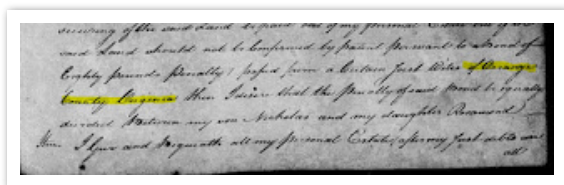 securing of the said Land to be paid out of my personal Estate but if the
said Land should not be Confirmed by patent persuant to a Bond of
Eighty pounds penalty passed from a Certain Joel Wiles of Orange
County Virginia then I desire that the penalty of said Bond be equally
divided between my son Nicholas and my daughter Rosamond
Item I Give and Bequeath all my personal Estate after my Just debts and
all